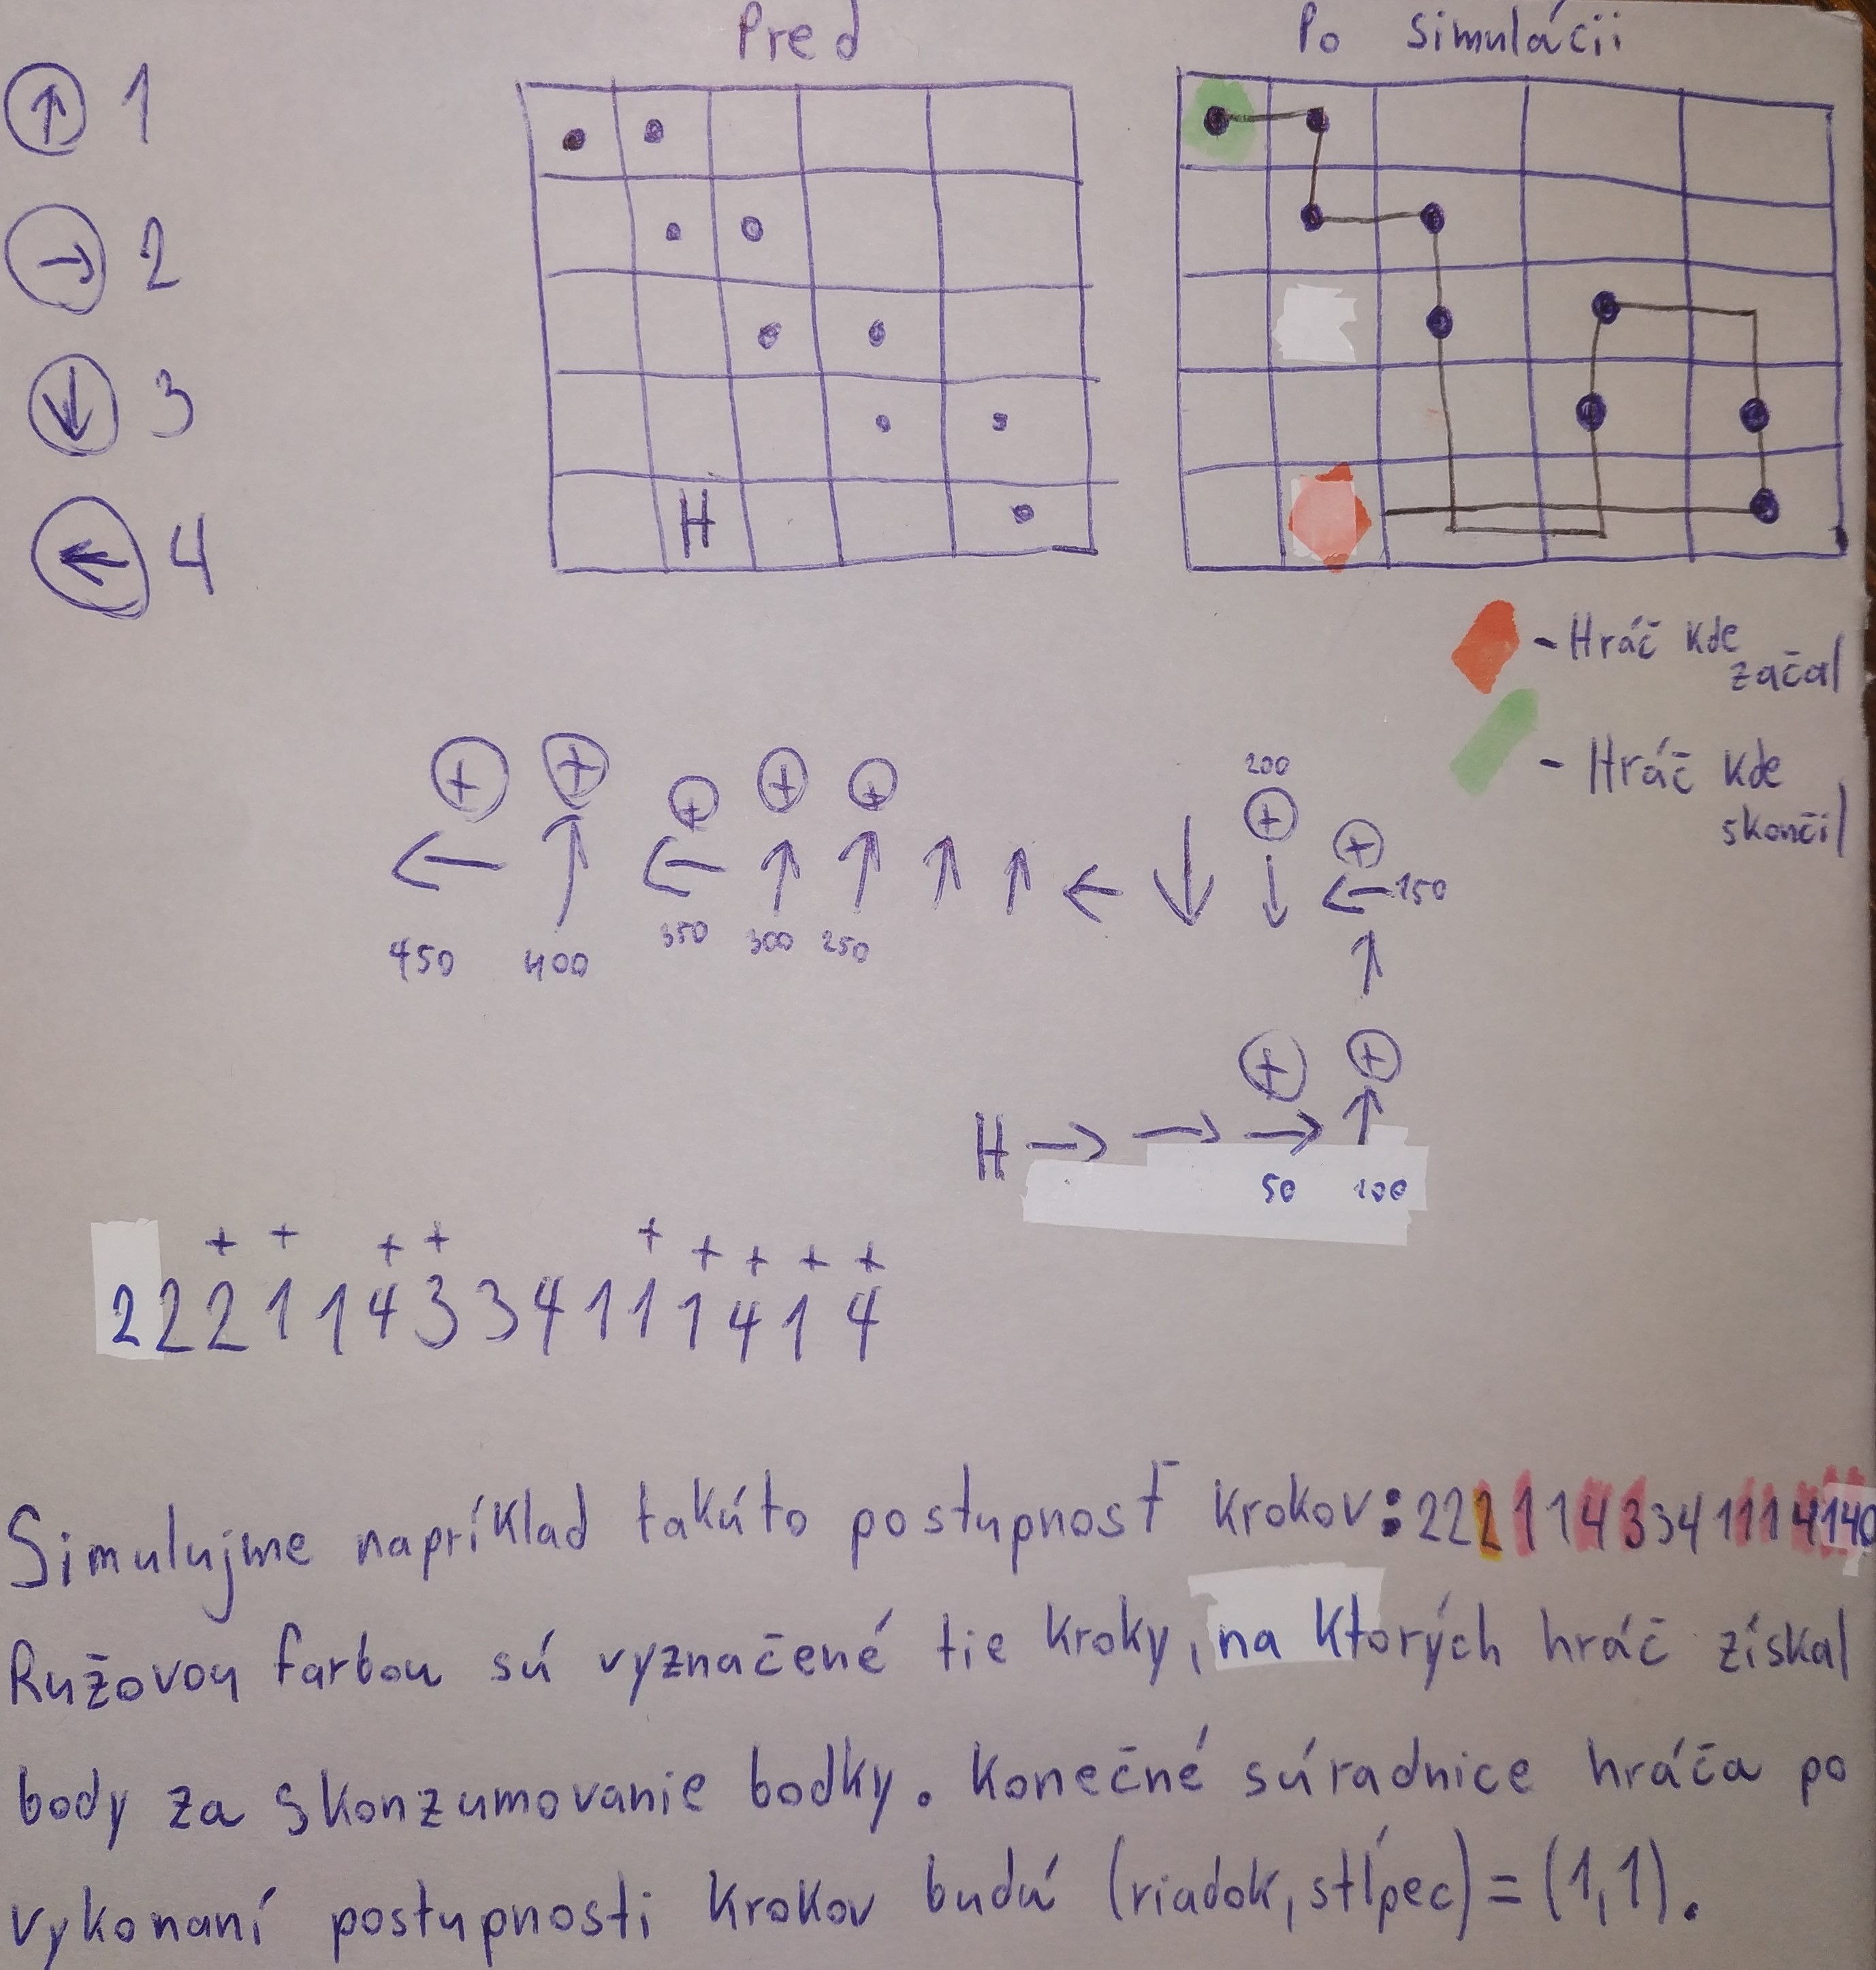 Pred
Po simulácii
1
2
3
4
H
- Hráč kde
začal
- Hráč kde
skončil
200
150
450 400 350 300 250
H
50 100
+ + + + + + + + +
222114334111414
Simulujme napríklad takúto postupnosť krokov: 2221143341114140
Ružovou farbou sú vyznačené tie kroky, na ktorých hráč získal
body za skonzumovanie bodky. Konečné súradnice hráča po
vykonaní postupnosti krokov budú (riadok, stĺpec) = (1,1).